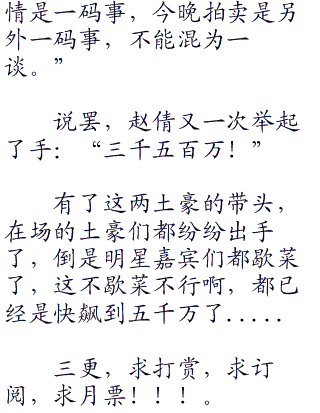 情是一码事，今晚拍卖是另
外一码事，不能混为一
谈。”
说罢，赵倩又一次举起
了手：“三千五百万！”
有了这两土豪的带头，
在场的土豪们都纷纷出手
了，倒是明星嘉宾们都歇菜
了，这不歇菜不行啊，都已
经是快飙到五千万了.....
三更，求打赏，求订
阅，求月票！！！。